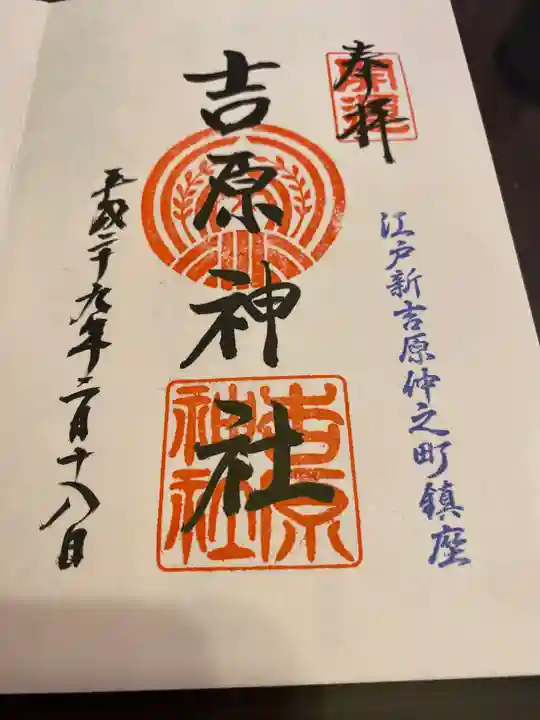 奉拝
江戸新吉原仲之町鎮座
吉原神社
吉原
神社
平成二十九年二月十八日